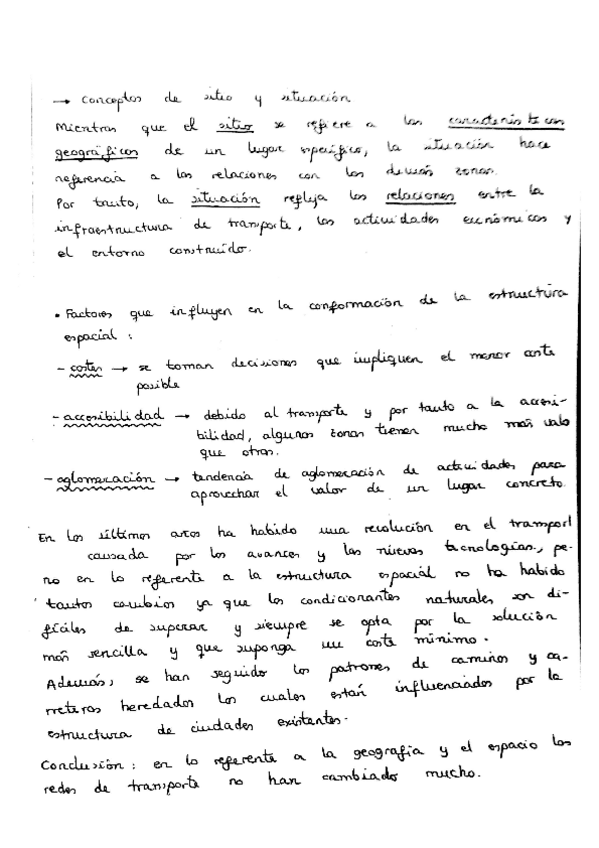 → Conceptos de sitio y situación
Mientras que el sitio se refiere a las características
geográficas de un lugar específico, la situación hace
referencia a las relaciones con las demás zonas.
Por tanto, la situación refleja las relaciones entre la
infraestructura de transporte, las actividades económicas y
el entorno construido.
• Factores que influyen en la conformación de la estructura
espacial :
- costes → se toman decisiones que impliquen el menor coste
posible
- accesibilidad → debido al transporte y por tanto a la accesi-
bilidad, algunas zonas tienen mucho más valo
que otras.
- aglomeración → tendencia de aglomeración de actividades para
aprovechar el valor de un lugar concreto.
En los últimos años ha habido una revolución en el transport
causada por los avances y las nuevas tecnologías, pe-
ro en lo referente a la estructura espacial no ha habido
tantos cambios ya que los condicionantes naturales son di-
fíciles de superar y siempre se opta por la solución
más sencilla y que suponga un coste mínimo.
Además, se han seguido los patrones de caminos y ca-
rreteras heredados los cuales están influenciados por la
estructura de ciudades existentes.
Conclusión : en lo referente a la geografía y el espacio las
redes de transporte no han cambiado mucho.